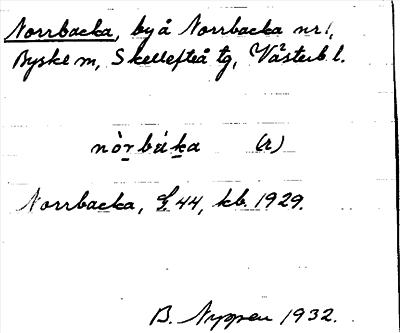 Norrbacka, by å Norrbacka nr 1,
Byske sn, Skellefteå tg, Västerb. l.
nòrbàka (a)
Norrbacka, 44, kb. 1929.
B. Nyppen 1932.